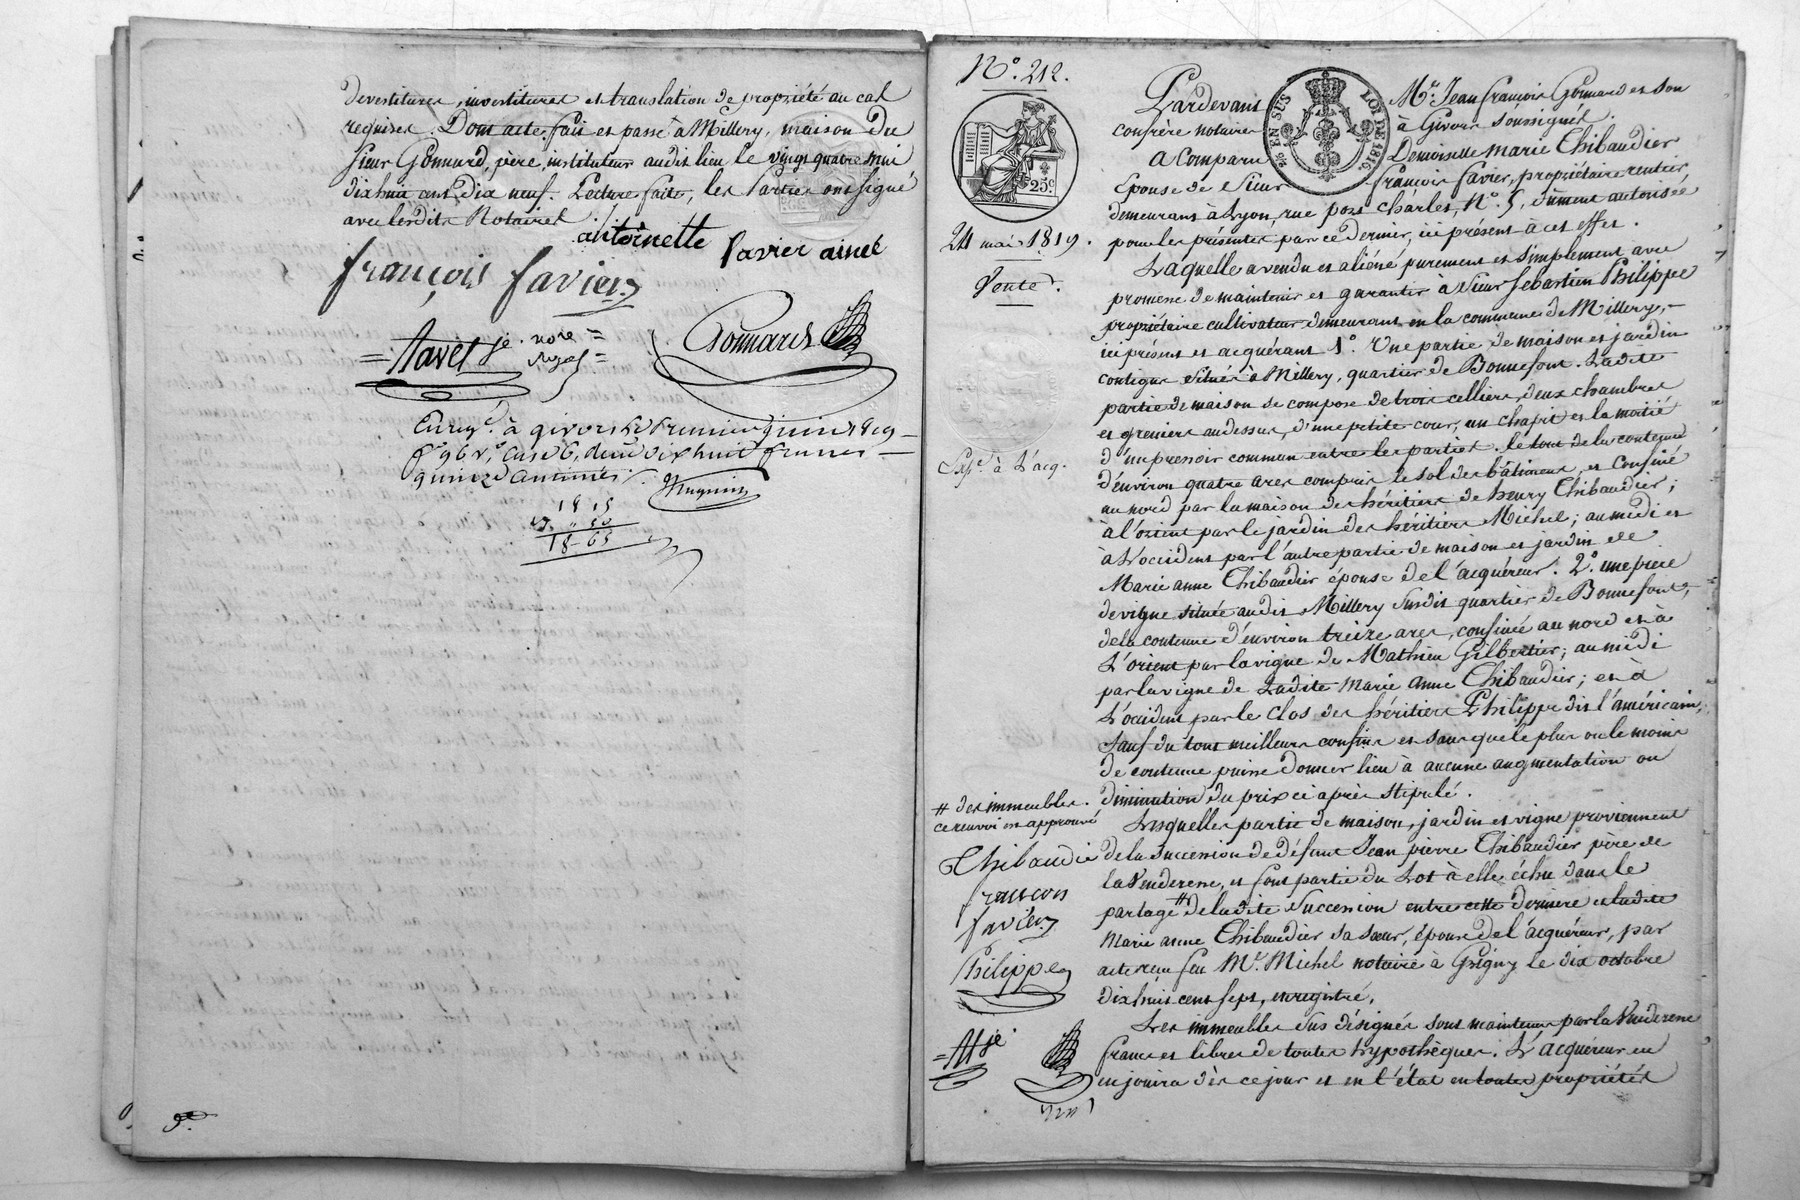 devestitures, investitures et translation de propriété au cas
requises. Dont acte, fait et passé à Millery, maison du
sieur Gonnard, père, instituteur audit lieu, le vingt quatre mai
dix huit cent dix neuf. Lecture faite, les Parties ont signé
avec lesdits Notaires
antoinette favier ainée
françois favier
Navel je. nore
Gonnard
Enreg.é à givors le premier juin 1819
fo 96 vo, case 6, reçu dix huit francs
quinze centimes
18 15
50
18 65
No. 212.
25c
EN SUS
LOI DE 1816
24 mai 1819.
Vente.
Exp.é à l'acq.
Pardevant Me. Jean françois Gonnard et son
confrère notaires à Givors soussignés.
A Comparu Demoiselle Marie Thibaudier
Epouse de Sieur françois favier, propriétaire rentier
demeurant à Lyon, rue port Charlet, No. 5, dûment autorisée
pour les présentes par ce dernier, ici présent à cet effet.
Laquelle a vendu et aliéné purement et simplement avec
promesse de maintenir et garantir à Sieur Sebastien Philippe
propriétaire cultivateur demeurant en la commune de Millery,
ici présent et acquérant 1o. Une partie de maison et jardin
contigus situés à Millery, quartier de Bonnefont. Ladite
partie de maison se compose de trois celliers, deux chambres
et greniers au dessus, d'une petite cour, un chapit et la moitié
d'un pressoir commun entre les parties. le tout de la contenue
d'environ quatre ares compris le sol des bâtiments, et Confiné
au nord par la maison des héritiers de henry Thibaudier;
à l'orient par le jardin des héritiers Michel; au midi et
à L'occident par l'autre partie de maison et jardin de
Marie anne Thibaudier épouse de l'acquéreur. 2o. une pièce
de vigne située audit Millery susdit quartier de Bonnefont,
de la contenue d'environ treize ares, confinée au nord et à
L'orient par la vigne de Mathieu Gilbertier; au midi
par la vigne de Ladite Marie Anne Thibaudier; et à
L'occident par le clos des héritiers Philippe dit l'américain,
sauf du tout meilleurs confins et sans que le plus ou le moins
de contenue puisse donner lieu à aucune augmentation ou
diminution du prix ci après stipulé.
Lesquelles partie de maison, jardin et vigne proviennent
de la succession de défunt Jean pierre Thibaudier père de
la Venderesse, et font partie du Lot à elle échu dans le
partage # de ladite Succession entre cette dernière et ladite
Marie anne Thibaudier sa sœur, épouse de l'acquéreur, par
acte reçu feu Me. Michel notaire à Grigny le dix octobre
dix huit cent sept, enregistré.
Les immeubles sus désignés sont maintenus par la Venderesse
francs et libres de toutes hypothèques. L'acquéreur en
en jouira dès ce jour et en l'état en toutes propriétés
# des immeubles.
ce renvoi est approuvé
Thibaudié
francois
favier
Philippe